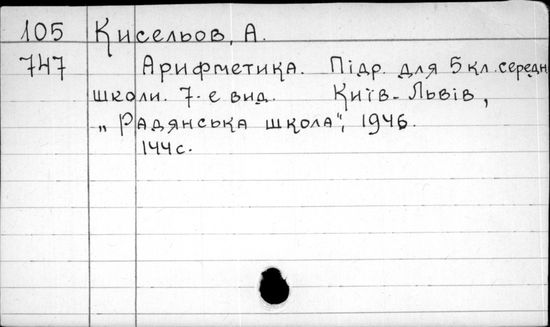 105 Кисельов, А.
747 Арифметика. Підр. для 5 кл. середн.
школи. 7-е вид. Київ-Львів,
„Радянська школа", 1946.
144 с.